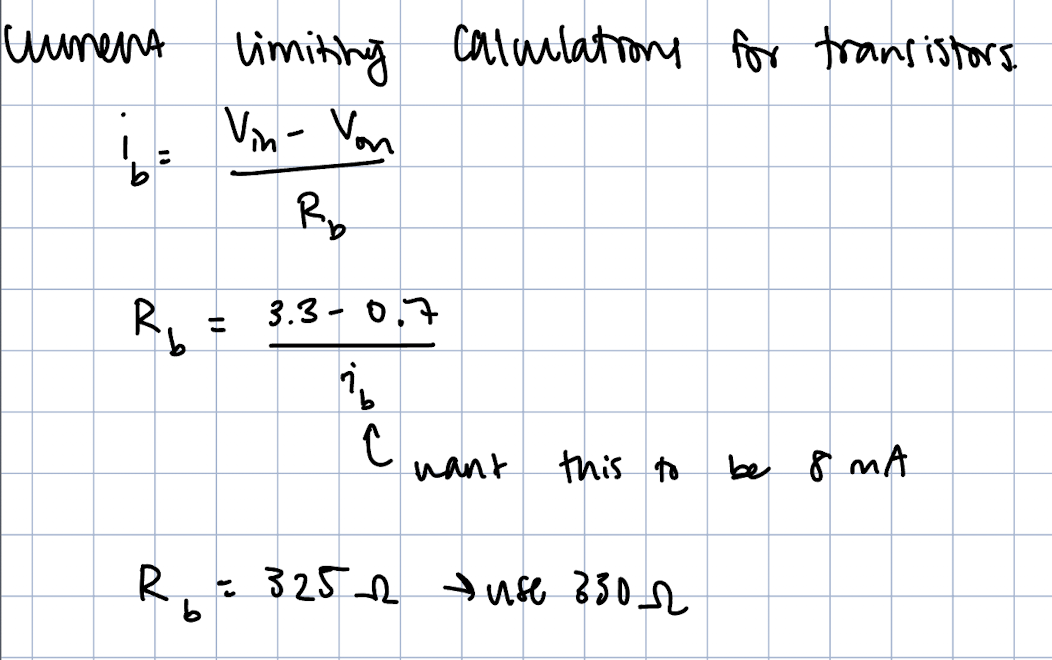 Current limiting calculations for transistors.
i_b = (V_in - V_on) / R_b
R_b = (3.3 - 0.7) / i_b
want this to be 8 mA
R_b = 325 Ω → use 330 Ω